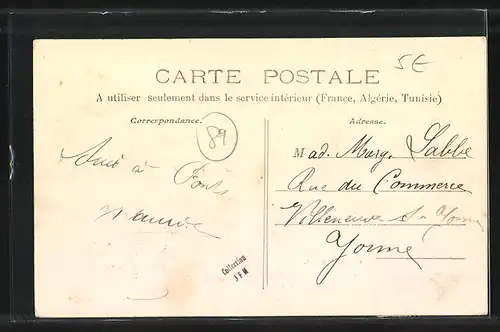 5E
CARTE POSTALE
A utiliser seulement dans le service intérieur (France, Algérie, Tunisie)
Correspondance.
89
à
Maurice
Collection
J F M
Adresse.
Mad. Marg. Labbe
Rue du Commerce
Villeneuve s- Yonne
Yonne